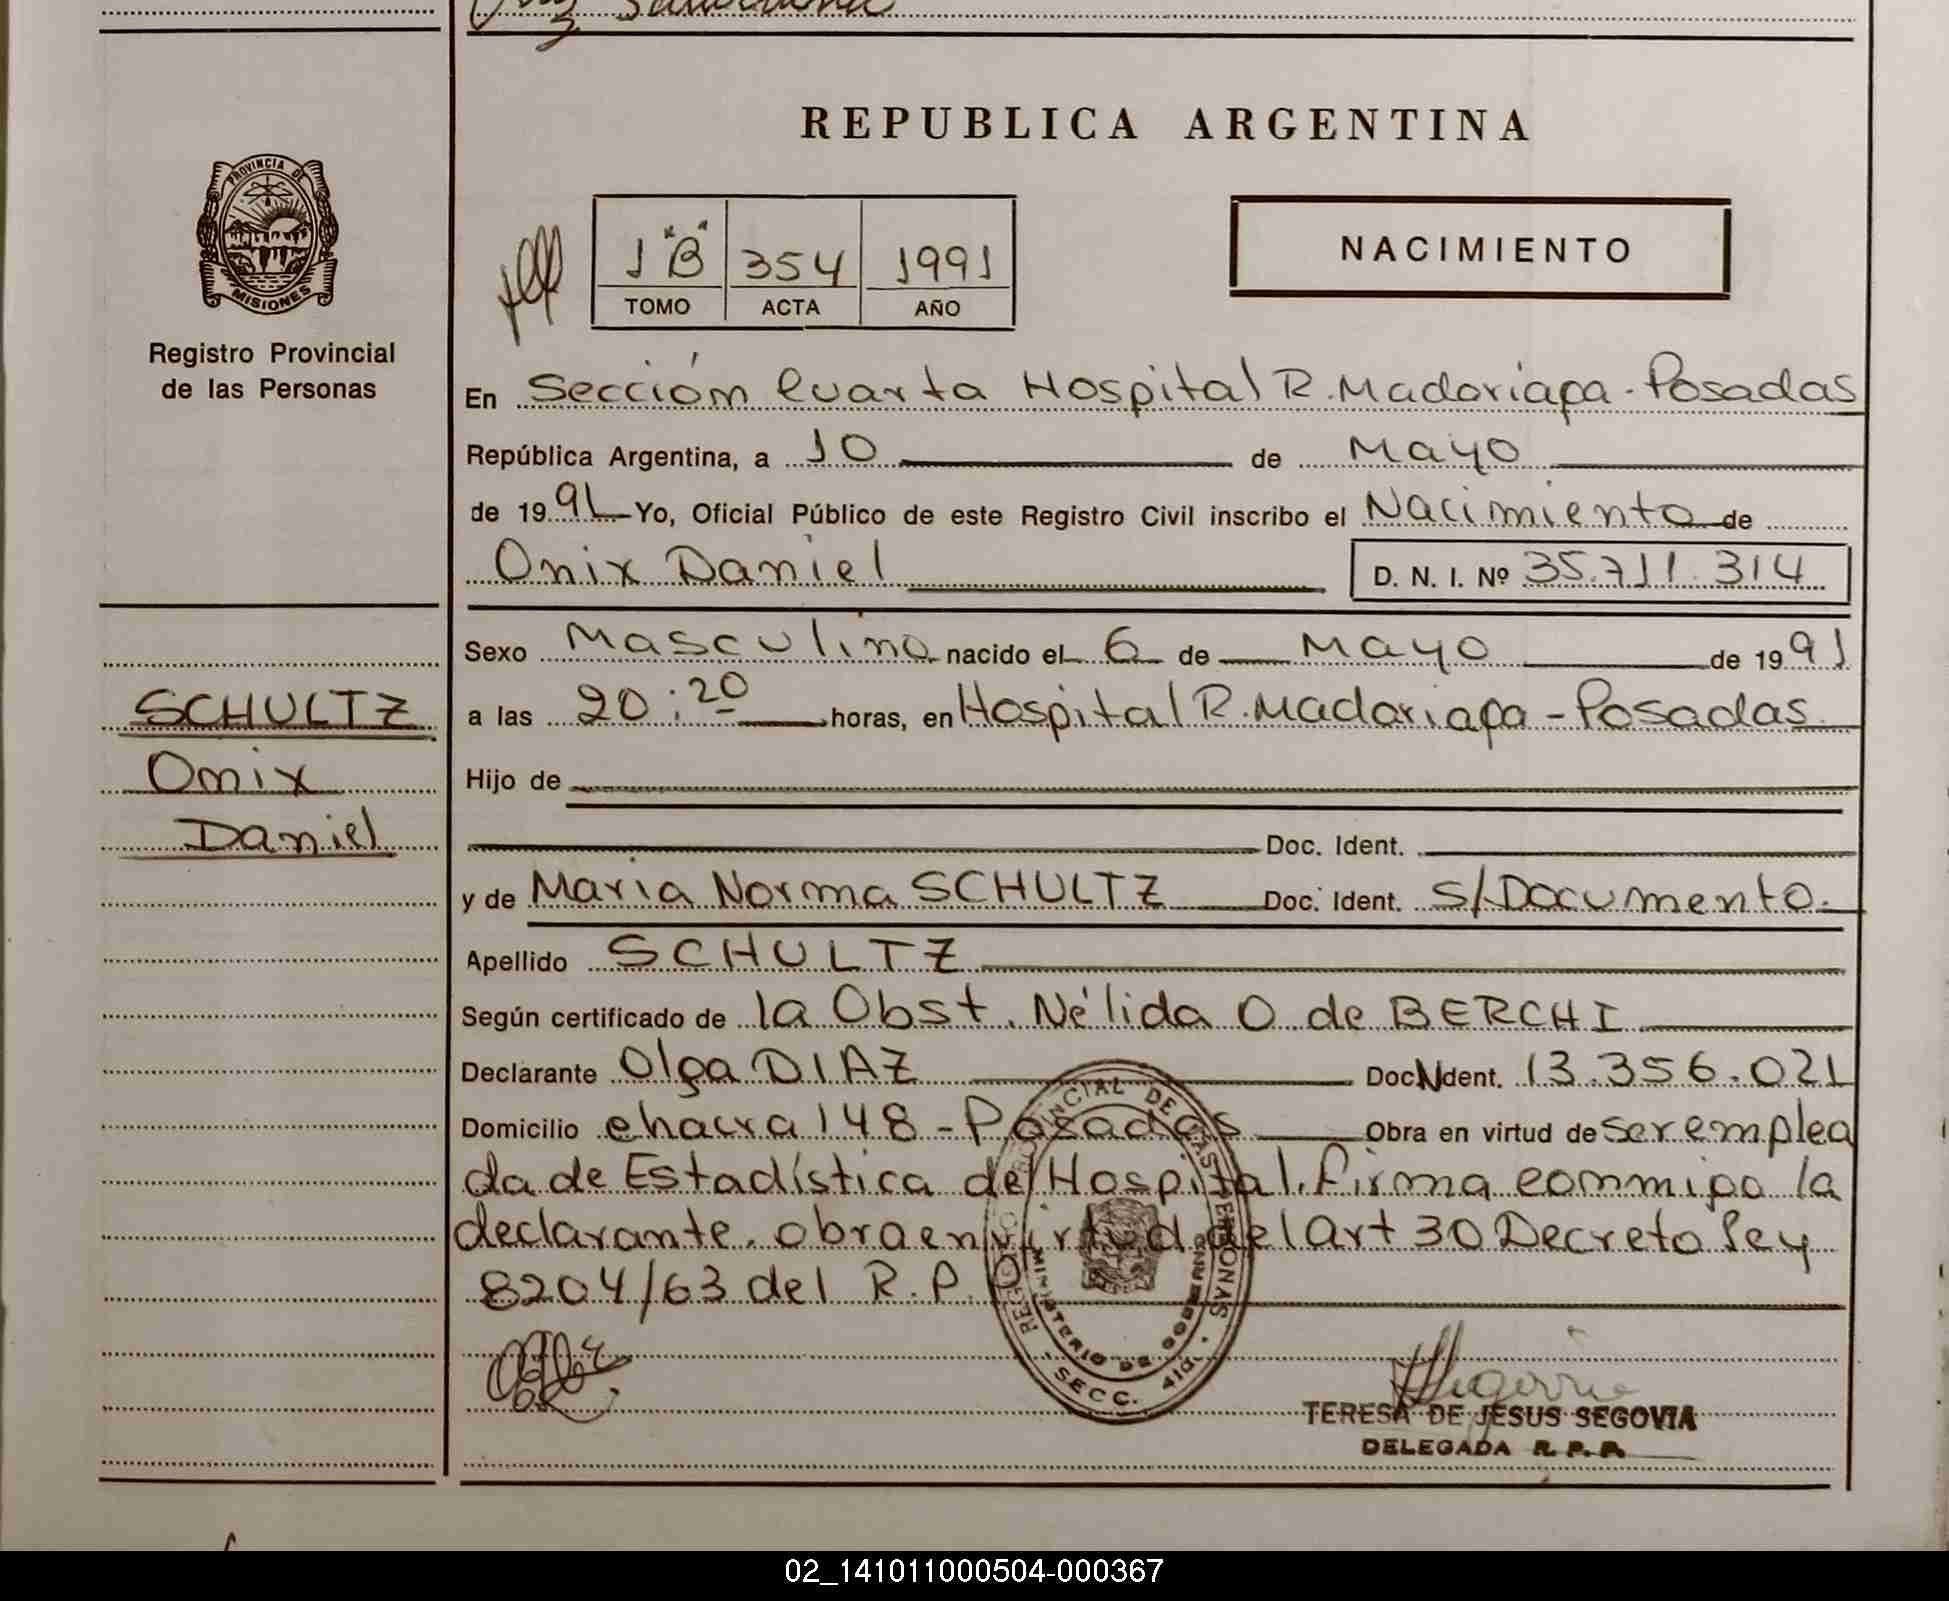 PROVINCIA DE
MISIONES
Registro Provincial
de las Personas
SCHULTZ
Onix
Daniel
REPUBLICA ARGENTINA
1 "B" 354 1991
TOMO ACTA AÑO
NACIMIENTO
En Sección Cuarta Hospital R. Madariaga - Posadas
República Argentina, a 10 de Mayo
de 1991 Yo, Oficial Público de este Registro Civil inscribo el Nacimiento de
Onix Daniel D. N. I. Nº 35.711.314
Sexo Masculino nacido el 6 de Mayo de 1991
a las 20:20 horas, en Hospital R. Madariaga - Posadas
Hijo de
Doc. Ident.
y de Maria Norma SCHULTZ Doc. Ident. S/Documento.
Apellido SCHULTZ
Según certificado de la Obst. Nélida O de BERCHI
Declarante Olga DIAZ Doc. Ident. 13.356.021
Domicilio chacra 148 - Posadas Obra en virtud de ser emplea
da de Estadística del Hospital. Firma conmigo la
declarante. obra en virtud del art 30 Decreto Ley
8204/63 del R.P.P
REGISTRO PROVINCIAL DE LAS PERSONAS
MINISTERIO DE GOBIERNO
SECC. 4ta.
TERESA DE JESUS SEGOVIA
DELEGADA R. P. P.
02_141011000504-000367